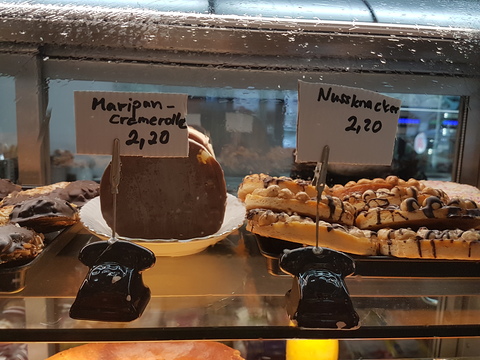 Maripan-
Cremerolle
2,20
Nussknacker
2,20